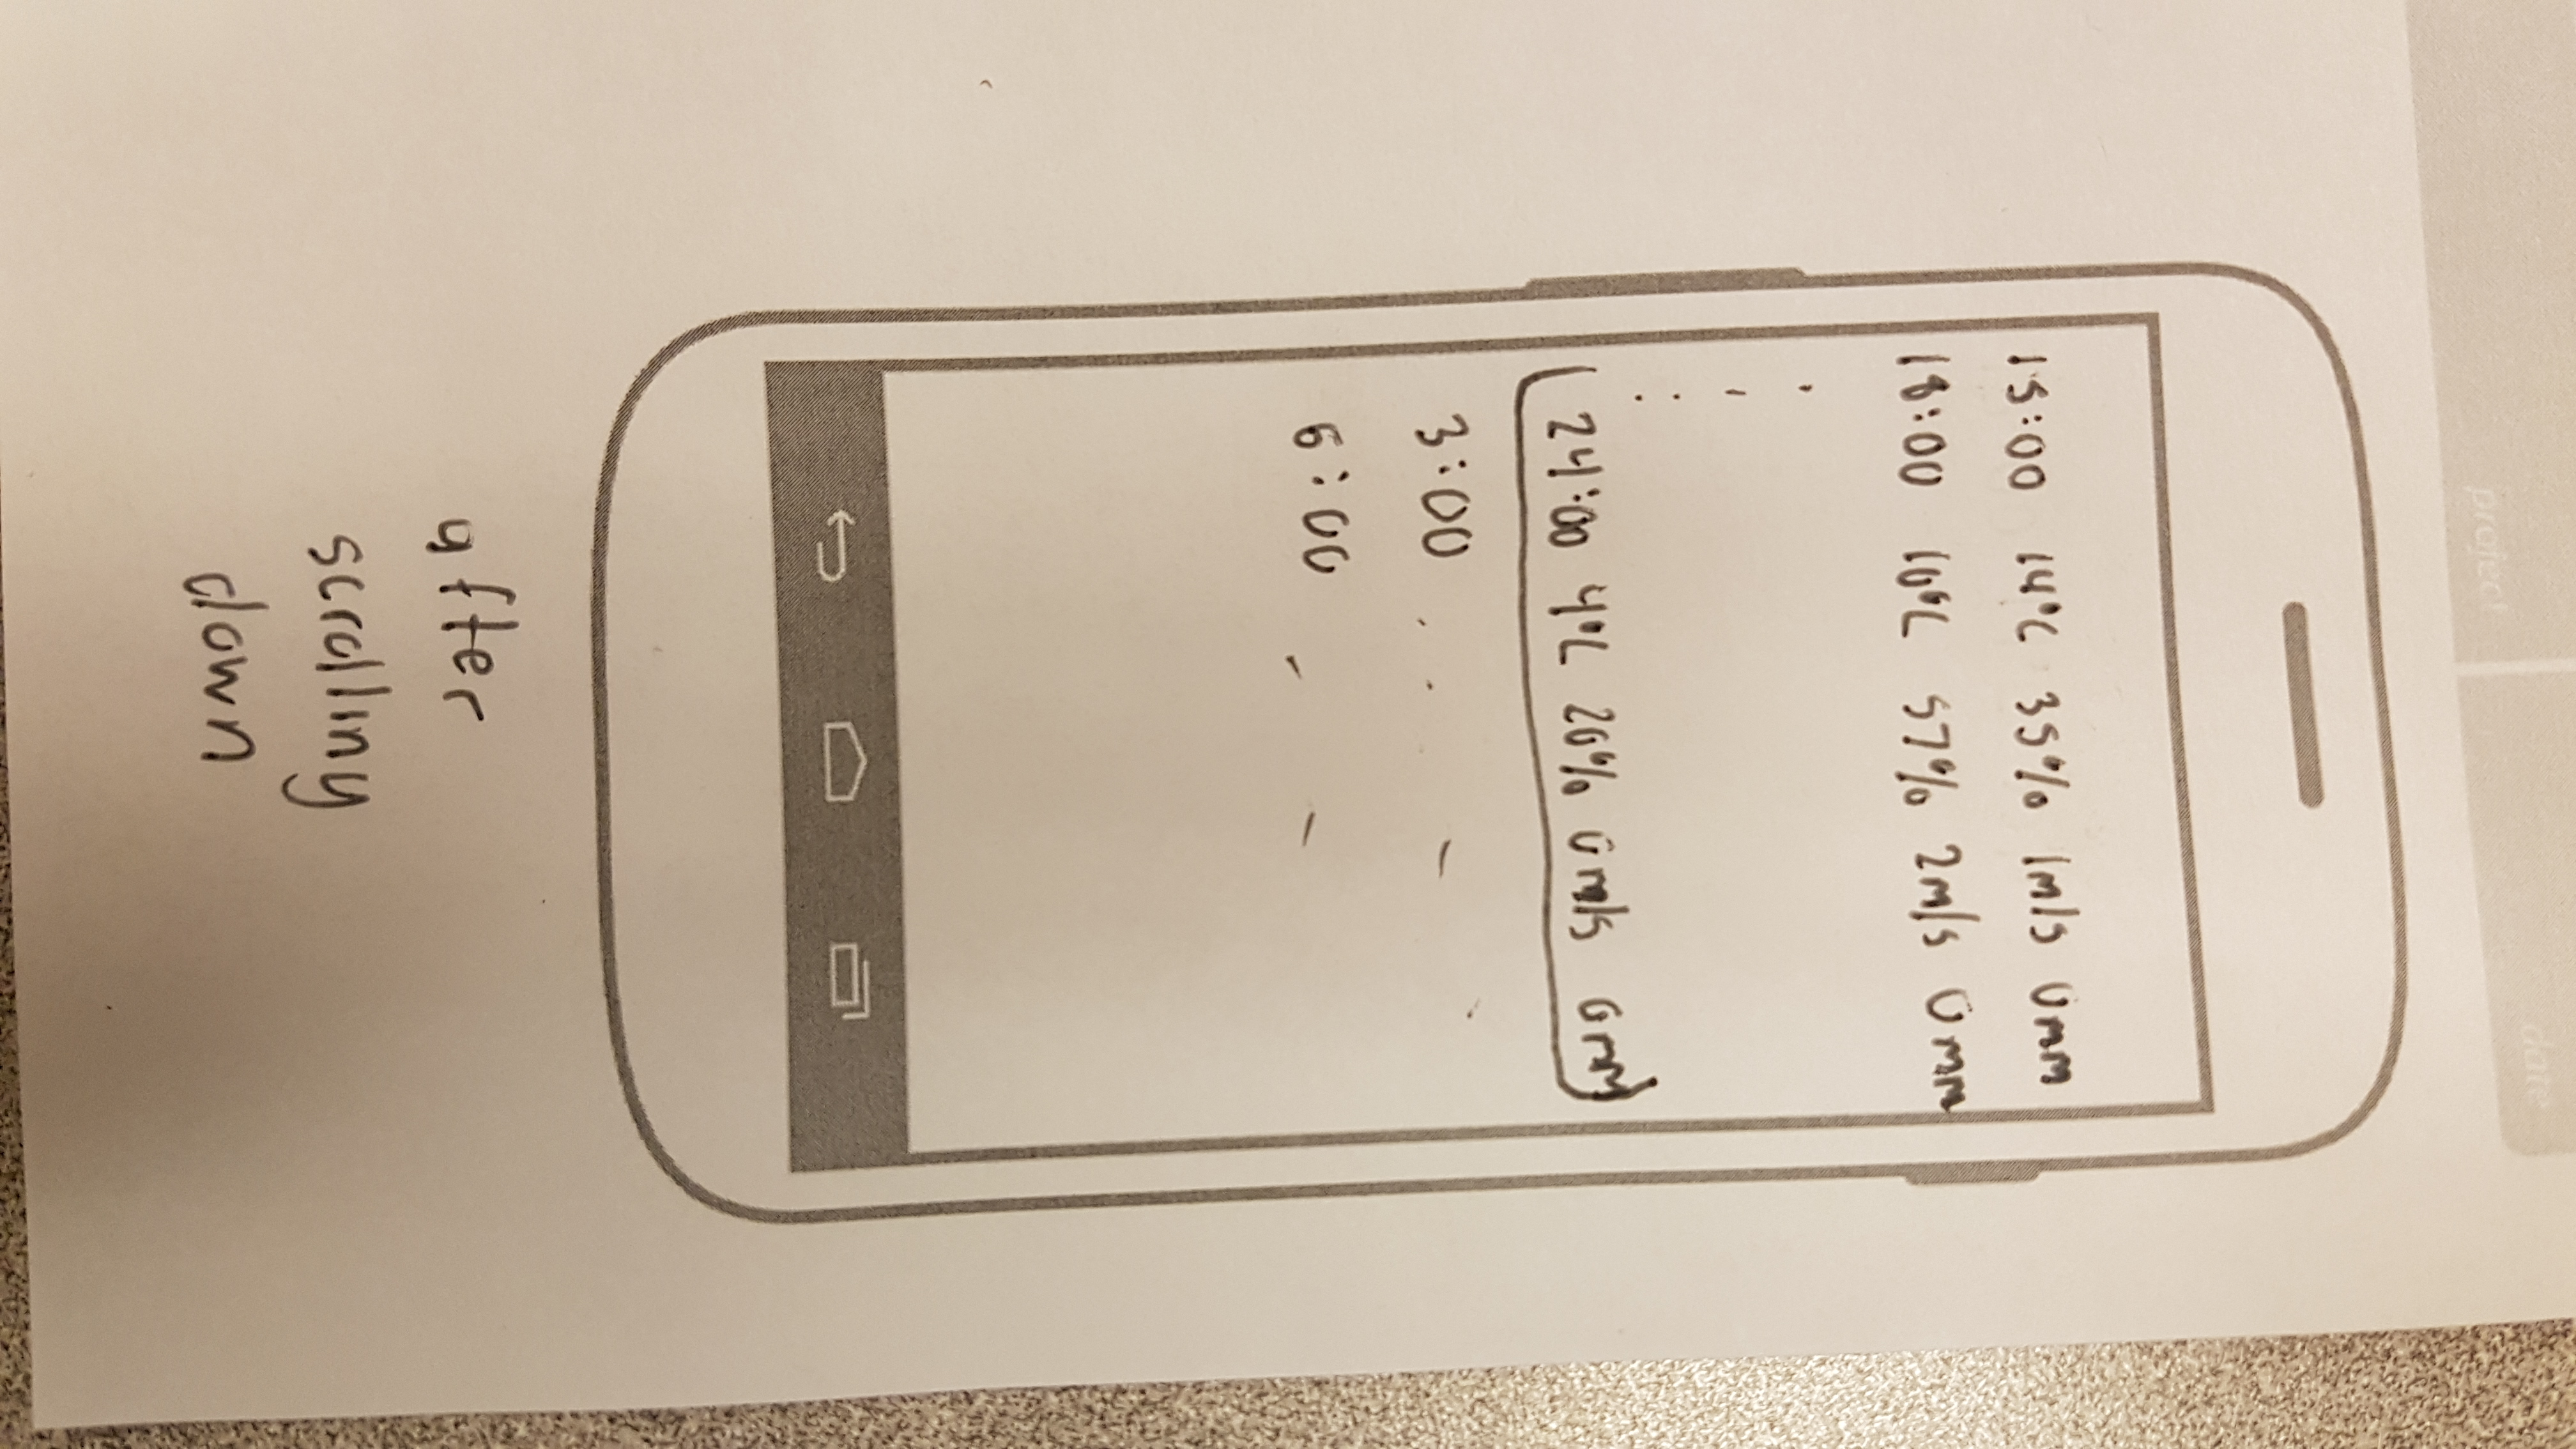 project
date
15:00 14°C 35% 1m/s 0mm
18:00 10°C 57% 2m/s 0mm
.
.
.
.
24:00 4°C 20% 0m/s 0mm
3:00 . . -
6:00 - -
after
scrolling
down